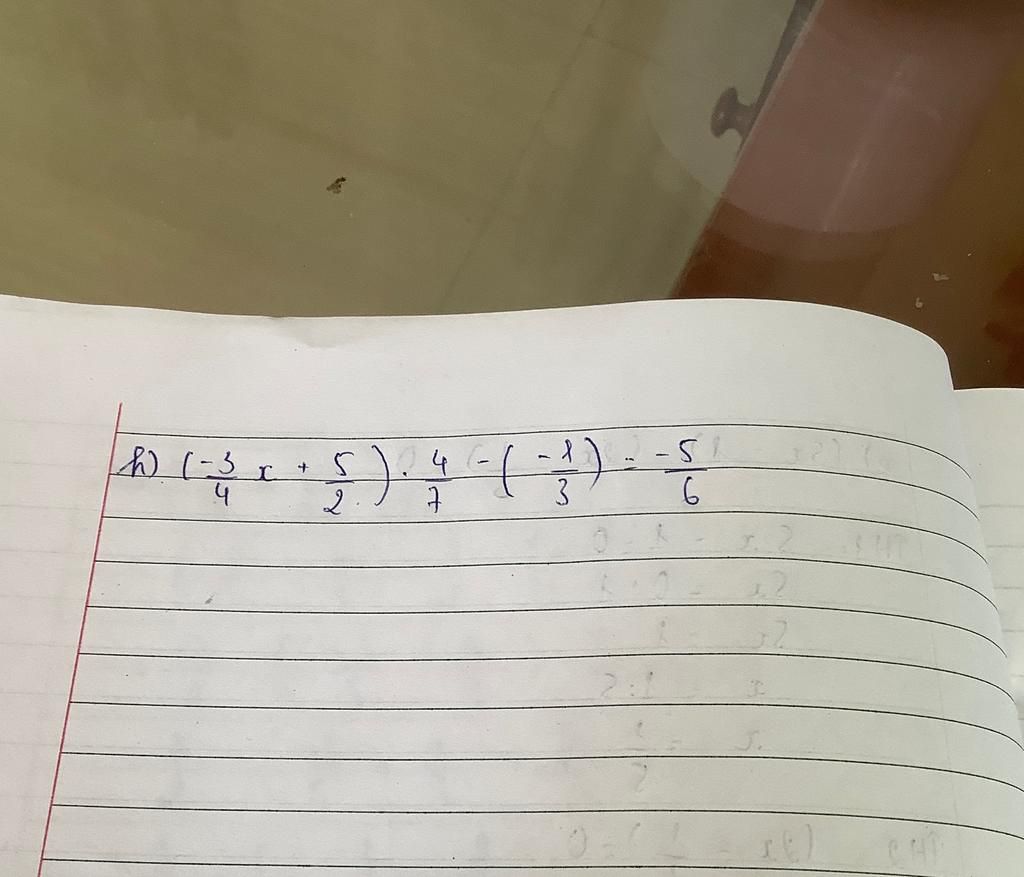 h) (-3/4 x + 5/2) . 4/7 - (-1/3) = -5/6